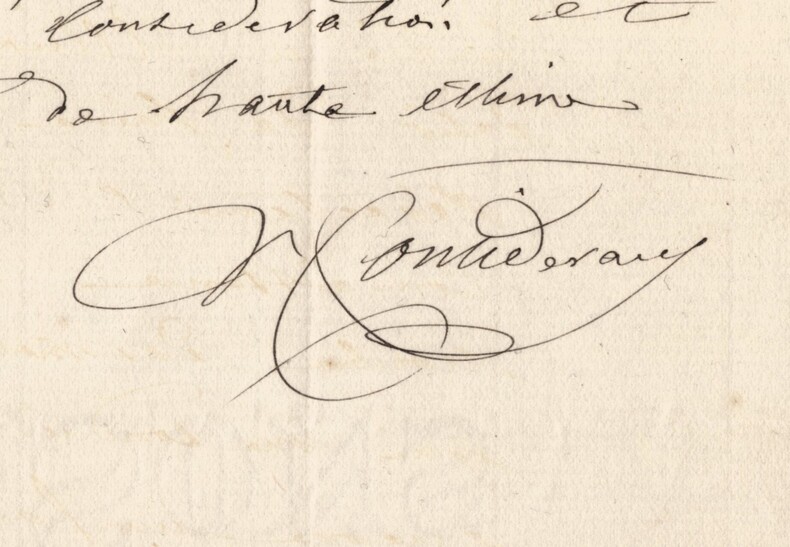 Considération et
de haute estime
V Considerant